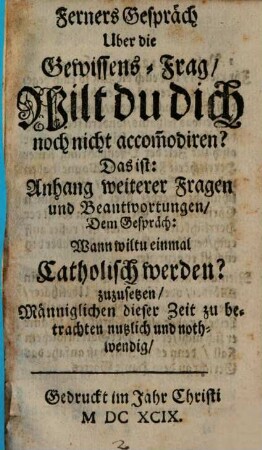 Ferners Gespräch
Uber die
Gewissens-Frag/
Wilt du dich
noch nicht accom̄odiren?
Das ist:
Anhang weiterer Fragen
und Beantwortungen/
Dem Gespräch:
Wann wiltu einmal
Catholisch werden?
zuzusetzen/
Männiglichen dieser Zeit zu be-
trachten nutzlich und noth-
wendig/
Gedruckt im Jahr Christi
M DC XCIX.
2